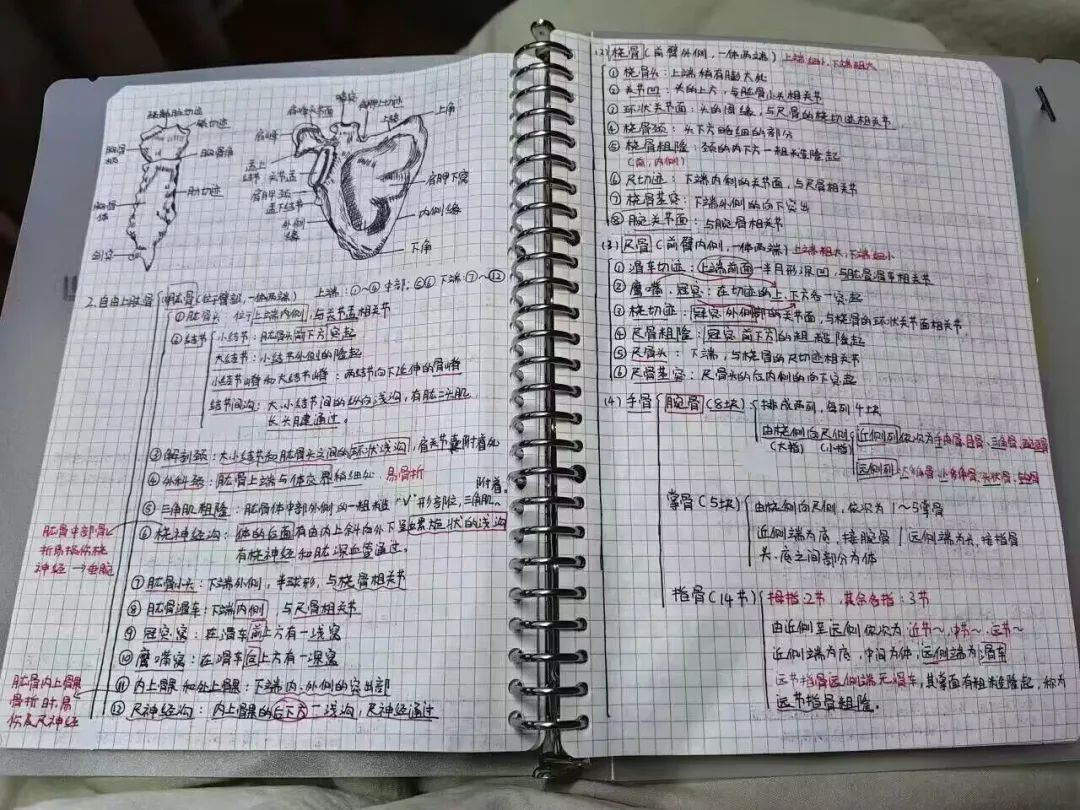 颈静脉切迹
锁切迹
胸骨柄
胸骨角
肋切迹
胸骨体
剑突
喙突
肩胛上切迹
上缘
上角
肩峰
盂上结节
关节盂
肩胛颈
盂下结节
外侧缘
肩胛下窝
内侧缘
下角
2.自由上肢骨
(1)肱骨(位于臂部,一体两端) 上端:①~④ 中部:⑤⑥ 下端⑦~⑫
①肱骨头:位于上端内侧,与关节盂相关节
②结节
小结节:肱骨头前下方突起
大结节:小结节外侧的隆起
小结节嵴和大结节嵴:两结节向下延伸的骨嵴
结节间沟:大小结节间的纵向浅沟,有肱二头肌
长头肌腱通过。
③解剖颈:大小结节和肱骨头之间的环状浅沟,肩关节囊附着处
④外科颈:肱骨上端与体交界稍细处 易骨折
⑤三角肌粗隆:肱骨体中部外侧的一粗糙“V”形部位,三角肌附着。
⑥桡神经沟:体的后面有由内上斜向外下呈螺旋状的浅沟
有桡神经和肱深血管通过。
肱骨中部骨
折易损伤桡
神经→垂腕
⑦肱骨小头:下端外侧,半球形,与桡骨相关节
⑧肱骨滑车:下端内侧 与尺骨相关节
⑨冠突窝:在滑车前上方有一浅窝
⑩鹰嘴窝:在滑车后上方有一深窝
⑪内上髁和外上髁:下端内、外侧的突出部
⑫尺神经沟:内上髁的后下方一浅沟,尺神经通过
肱骨内上髁
骨折时,易
伤及尺神经
(2)桡骨(前臂外侧,一体两端) 上端细小,下端粗大
①桡骨头:上端稍有膨大处
②关节凹:头的上方,与肱骨小头相关节
③环状关节面:头的周缘,与尺骨的桡切迹相关节
④桡骨颈:头下方略细的部分
⑤桡骨粗隆:颈的内下方一粗糙隆起
(前,内侧)
⑥尺切迹:下端内侧的关节面,与尺骨相关节
⑦桡骨茎突:下端外侧的向下突出
⑧腕关节面:与腕骨相关节
(3)尺骨(前臂内侧,一体两端)上端粗大,下端细小
①滑车切迹:上端前面一半月形深凹,与肱骨滑车相关节
②鹰嘴、冠突:在切迹的上、下方各一突起
③桡切迹:冠突外侧部的关节面,与桡骨的环状关节面相关节,
④尺骨粗隆:冠突前下方的粗糙隆起
⑤尺骨头:下端,与桡骨的尺切迹相关节
⑥尺骨茎突:尺骨头的后内侧的向下突起
(4)手骨
腕骨(8块)
排成两列,每列4块
由桡侧向尺侧
(大指) (小指)
近侧列依次为手舟骨、月骨、三角骨、豌豆骨
远侧列:大多角骨、小多角骨、头状骨、钩骨
掌骨(5块)
由桡侧向尺侧,依次为1~5掌骨
近侧端为底,接腕骨/远侧端为头,接指骨
头、底之间部分为体
指骨(14节)
拇指:2节,其余各指:3节
由近侧至远侧依次为近节~、中节~、远节~
近侧端为底,中间为体,远侧端为滑车
远节指骨远侧端无滑车,其掌面有粗糙隆起,称为
远节指骨粗隆。